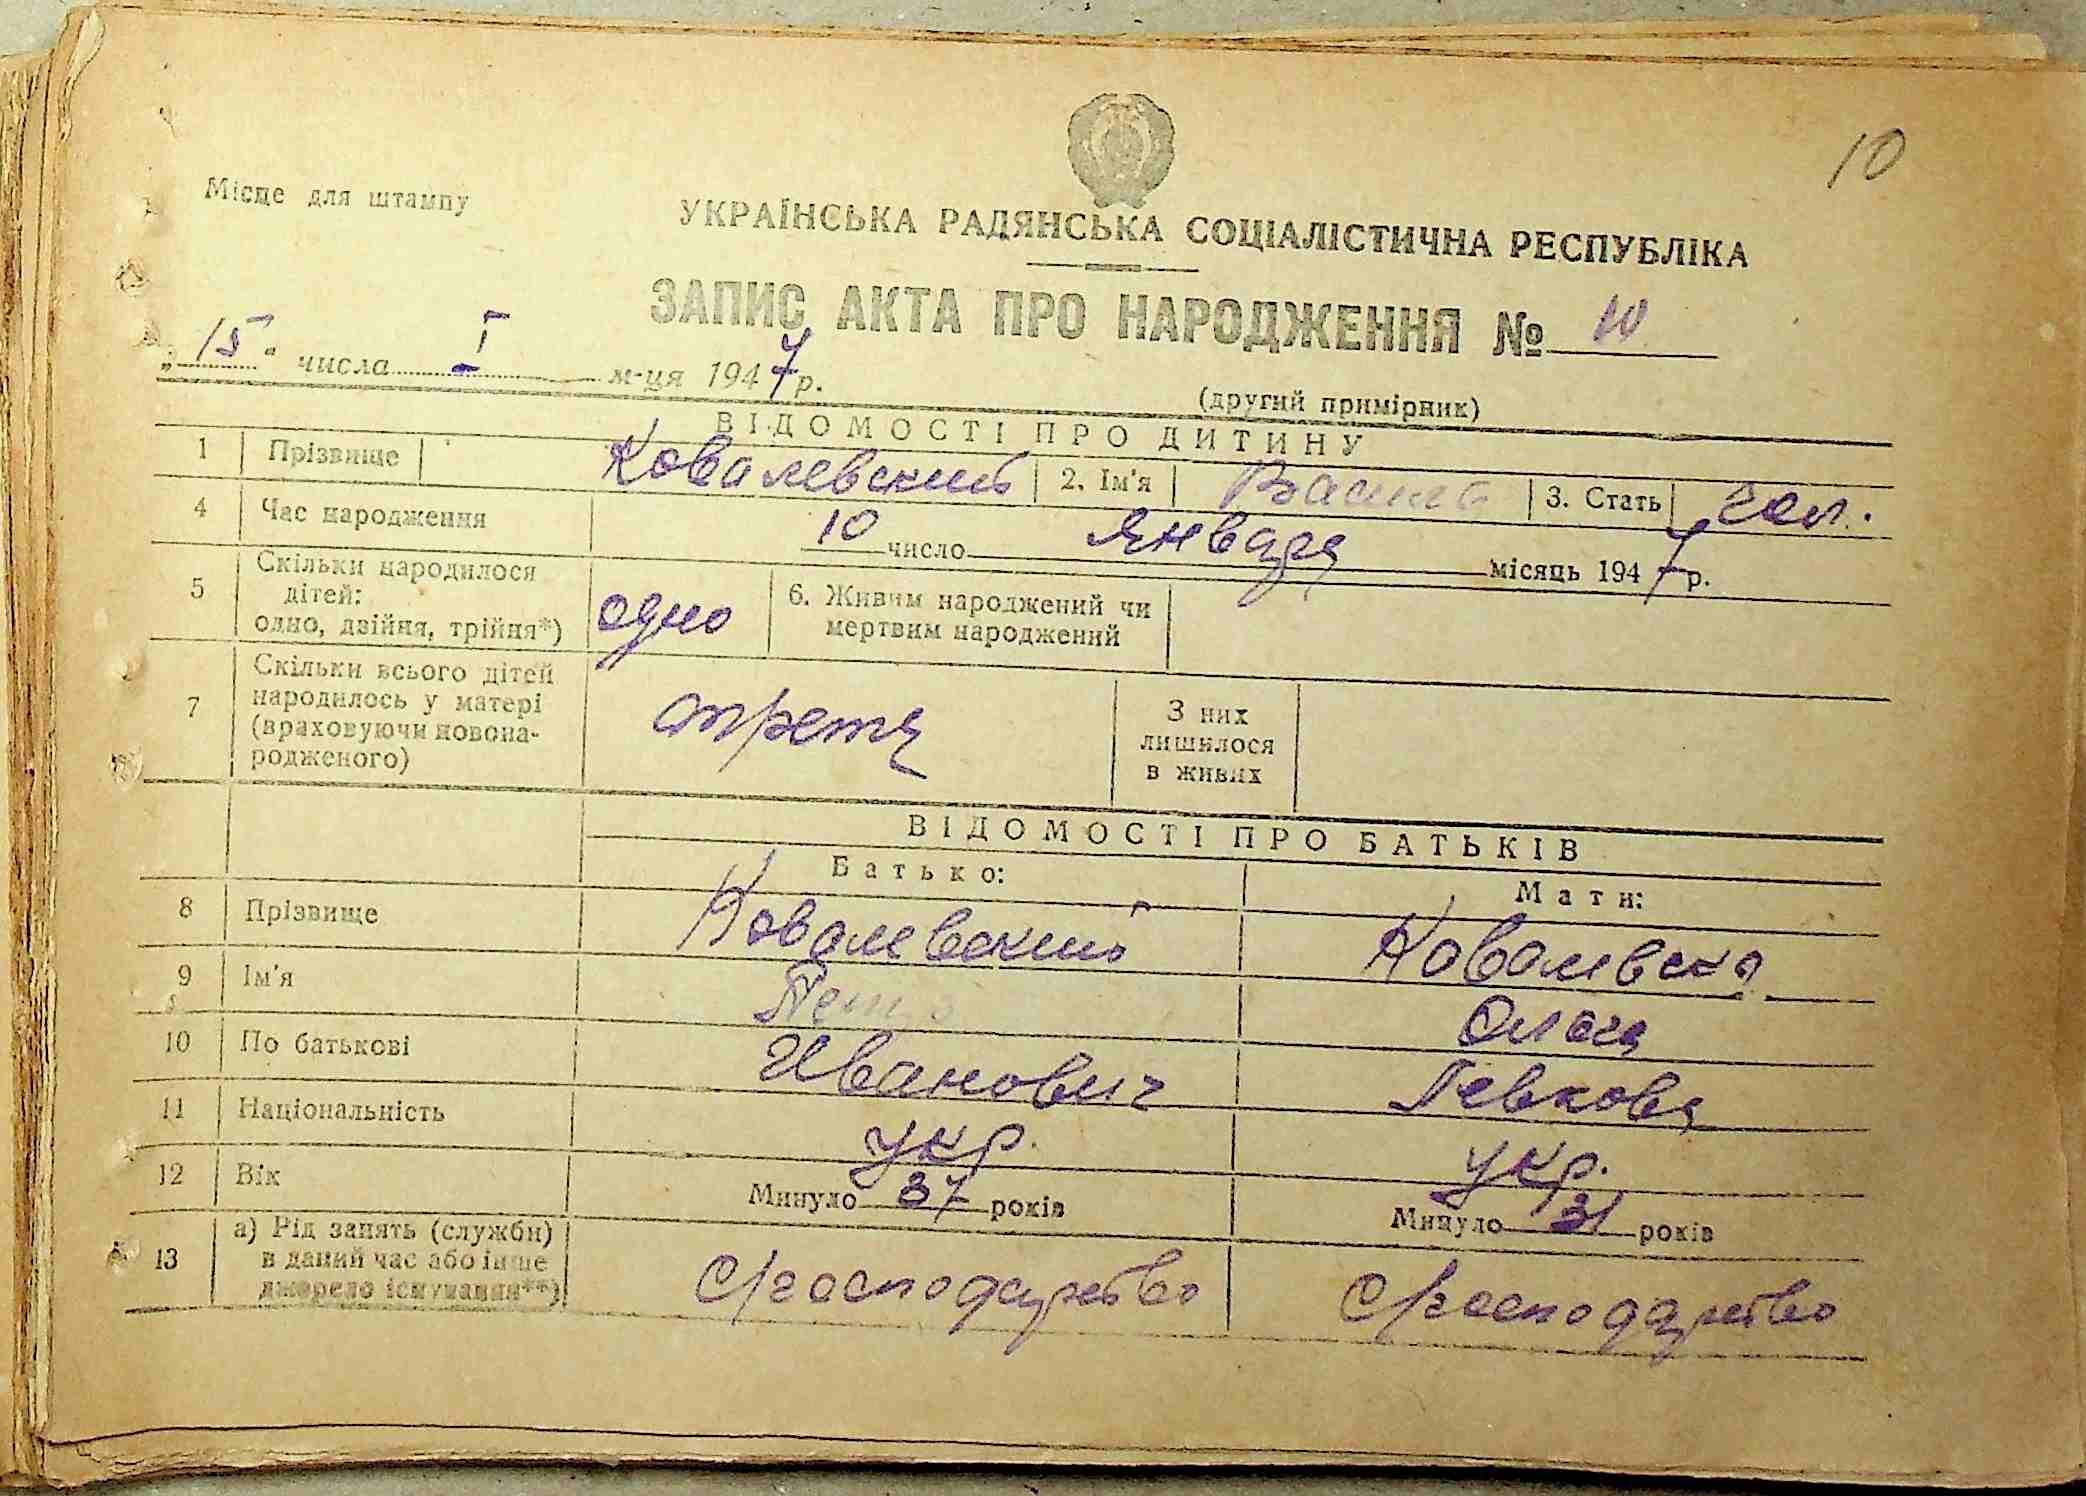 10
Місце для штампу
УКРАЇНСЬКА РАДЯНСЬКА СОЦІАЛІСТИЧНА РЕСПУБЛІКА
ЗАПИС АКТА ПРО НАРОДЖЕННЯ № 10
„15“ числа I м-ця 1947 р.
(другий примірник)
ВІДОМОСТІ ПРО ДИТИНУ
1 Прізвище Ковалевский 2. Ім'я Василь 3. Стать чол.
4 Час народження 10 число января місяць 1947 р.
5 Скільки народилося дітей: одно, двійня, трійня*) одно 6. Живим народжений чи мертвим народжений
7 Скільки всього дітей народилось у матері (враховуючи новонародженого) третя З них лишилося в живих
ВІДОМОСТІ ПРО БАТЬКІВ
Батько: Мати:
8 Прізвище Ковалевский Ковалевска
9 Ім'я Петро Ольга
10 По батькові Иванович Левкова
11 Національність укр. укр.
12 Вік Минуло 37 років Минуло 31 років
13 а) Рід занять (служби) в даний час або інше джерело існування**) с/господарство с/господарство